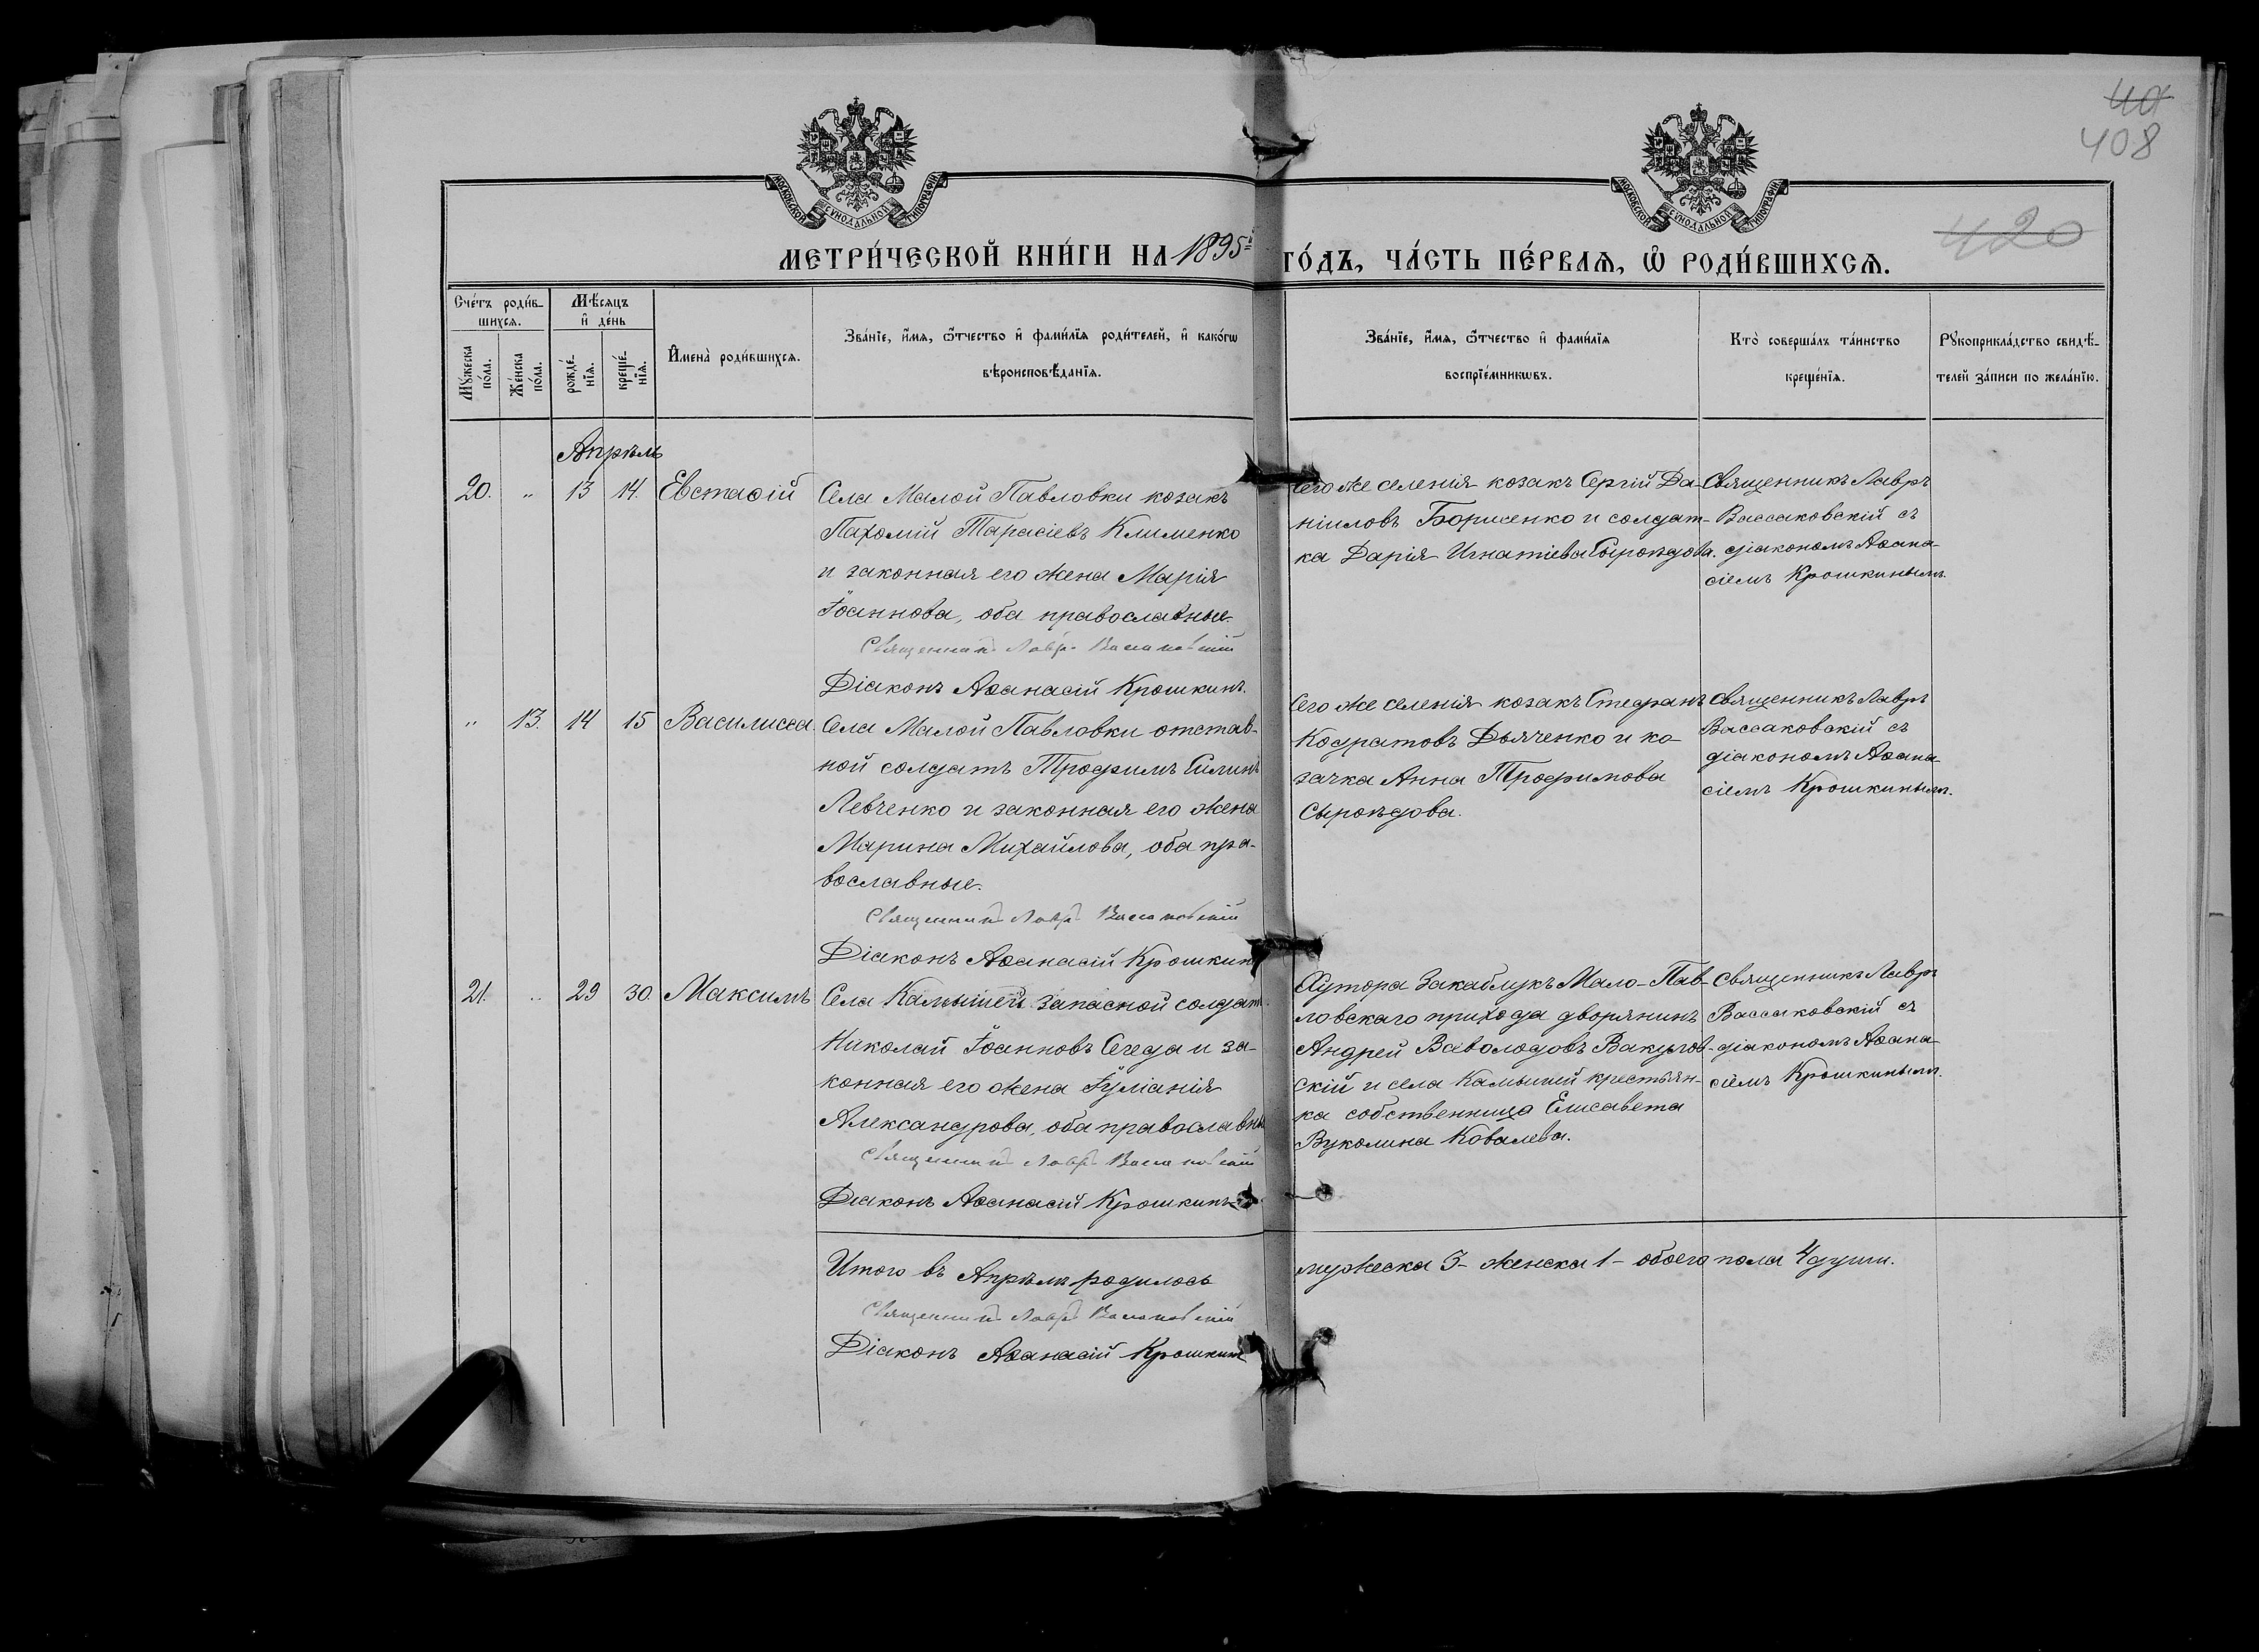 408
420
МОСКОВСКОЙ СѴНОДАЛЬНОЙ ТИПОГРАФІИ
МОСКОВСКОЙ СѴНОДАЛЬНОЙ ТИПОГРАФІИ
МЕТРИ́ЧЕСКОЙ КНИ́ГИ НА 1895й ГО́ДЪ, ЧА́СТЬ ПЕ́РВАѦ, Ѽ РОДИ́ВШИХСѦ.
Сче́тъ роди́в-
шихсѧ.
Мѣ́сѧцъ
и҆ де́нь
Мꙋ́жеска
по́ла.
Же́нска
по́ла.
рожде́-
нїѧ.
креще́-
нїѧ.
И҆мена̀ роди́вшихсѧ.
Зва́нїе, и҆́мѧ, ѻ҆́тчество и҆ фами́лїѧ роди́телей, и҆ како́гѡ
вѣроисповѣ́данїѧ.
Зва́нїе, и҆́мѧ, ѻ҆́тчество и҆ фами́лїѧ
воспрїе́мникѡвъ.
Кто̀ соверша́лъ та́инство
креще́нїѧ.
Рꙋкоприкла́дство свидѣ́-
телей за́писи по жела́нїю.
Апрѣль
20. " 13 14. Евстаѳій
Села Малой Павловки козакъ
Пахомій Тарасіевъ Клименко
и законная его жена Марія
Іоаннова, оба православные.
Священникъ Лавръ Вассаковскій
Діаконъ Аѳанасій Крошкинъ.
Сего же селенія козакъ Сергій Да-
ніиловъ Борисенко и солдат-
ка Дарія Игнатіева Сыроѣдова.
Священникъ Лавръ
Вассаковскій съ
діакономъ Аѳана-
сіемъ Крошкинымъ.
" 13. 14 15 Василисса.
Села Малой Павловки отстав-
ной солдатъ Трофимъ Силинъ
Левченко и законная его жена
Марина Михайлова, оба пра-
вославные.
Священникъ Лавръ Вассаковскій
Діаконъ Аѳанасій Крошкинъ
Сего же селенія козакъ Стефанъ
Кодратовъ Дьяченко и ко-
зачка Анна Трофимова
Сыроѣдова.
Священникъ Лавръ
Вассаковскій съ
діакономъ Аѳана-
сіемъ Крошкинымъ.
21. " 29 30. Максимъ
Села Камышей запасной солдатъ
Николай Іоанновъ Сегеда и за-
конная его жена Іуліанія
Александрова, оба православны
Священникъ Лавръ Вассаковскій
Діаконъ Аѳанасій Крошкинъ
Хутора Закаблукъ Мало-Пав-
ловскаго прихода дворянинъ
Андрей Вакулов-
скій и села Камышей крестьян-
ка собственница Елисавета
Вуколина Ковалева.
Священникъ Лавръ
Вассаковскій съ
діакономъ Аѳана-
сіемъ Крошкинымъ.
Итого въ Апрѣлѣ родилось мужеска 3 - женска 1 - обоего пола 4 души.
Священникъ Лавръ Вассаковскій
Діаконъ Аѳанасій Крошкинъ